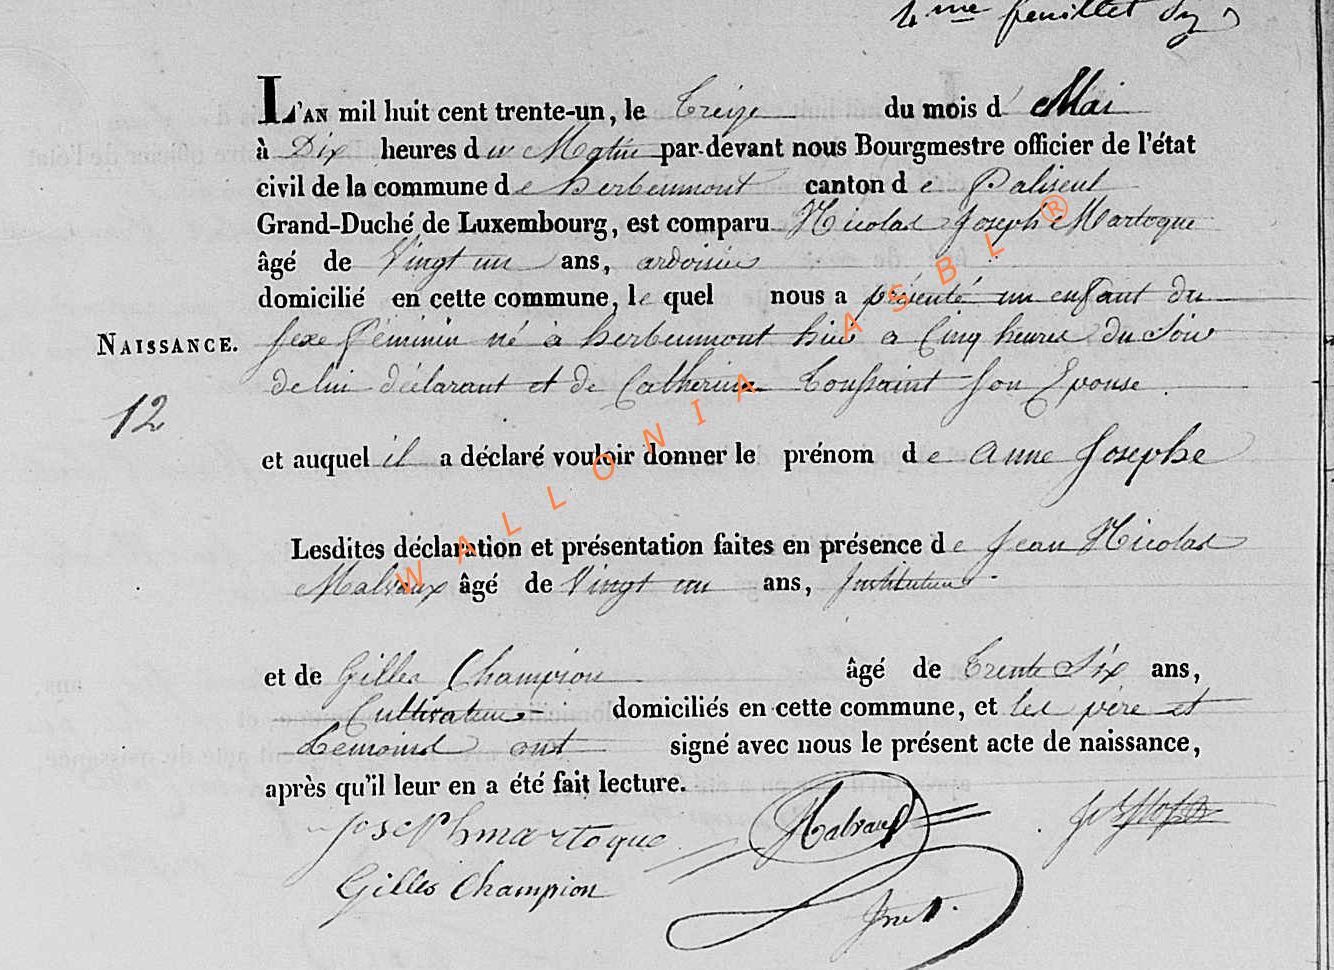 4me feuillet
L'AN mil huit cent trente-un, le Treize du mois d' Mai
à Dix heures du Matin par-devant nous Bourgmestre officier de l'état
civil de la commune de herbeumont canton de Paliseul
Grand-Duché de Luxembourg, est comparu Nicolas Joseph Martoque
âgé de Vingt un ans, ardoisier
domicilié en cette commune, le quel nous a présenté un enfant du
NAISSANCE. sexe féminin né à herbeumont hier a Cinq heures du Soir
de lui déclarant et de Catherine Toussaint Son Epouse
12
et auquel il a déclaré vouloir donner le prénom de Anne Josephe
Lesdites déclaration et présentation faites en présence de Jean Nicolas
Malvaux âgé de Vingt un ans, Instituteur
et de Gilles Champion âgé de Trente Six ans,
Cultivateur domiciliés en cette commune, et les père et
temoins ont signé avec nous le présent acte de naissance,
après qu'il leur en a été fait lecture.
Joseph martoque Malvaux
Gilles Champion
WALLONIA ASBL ®